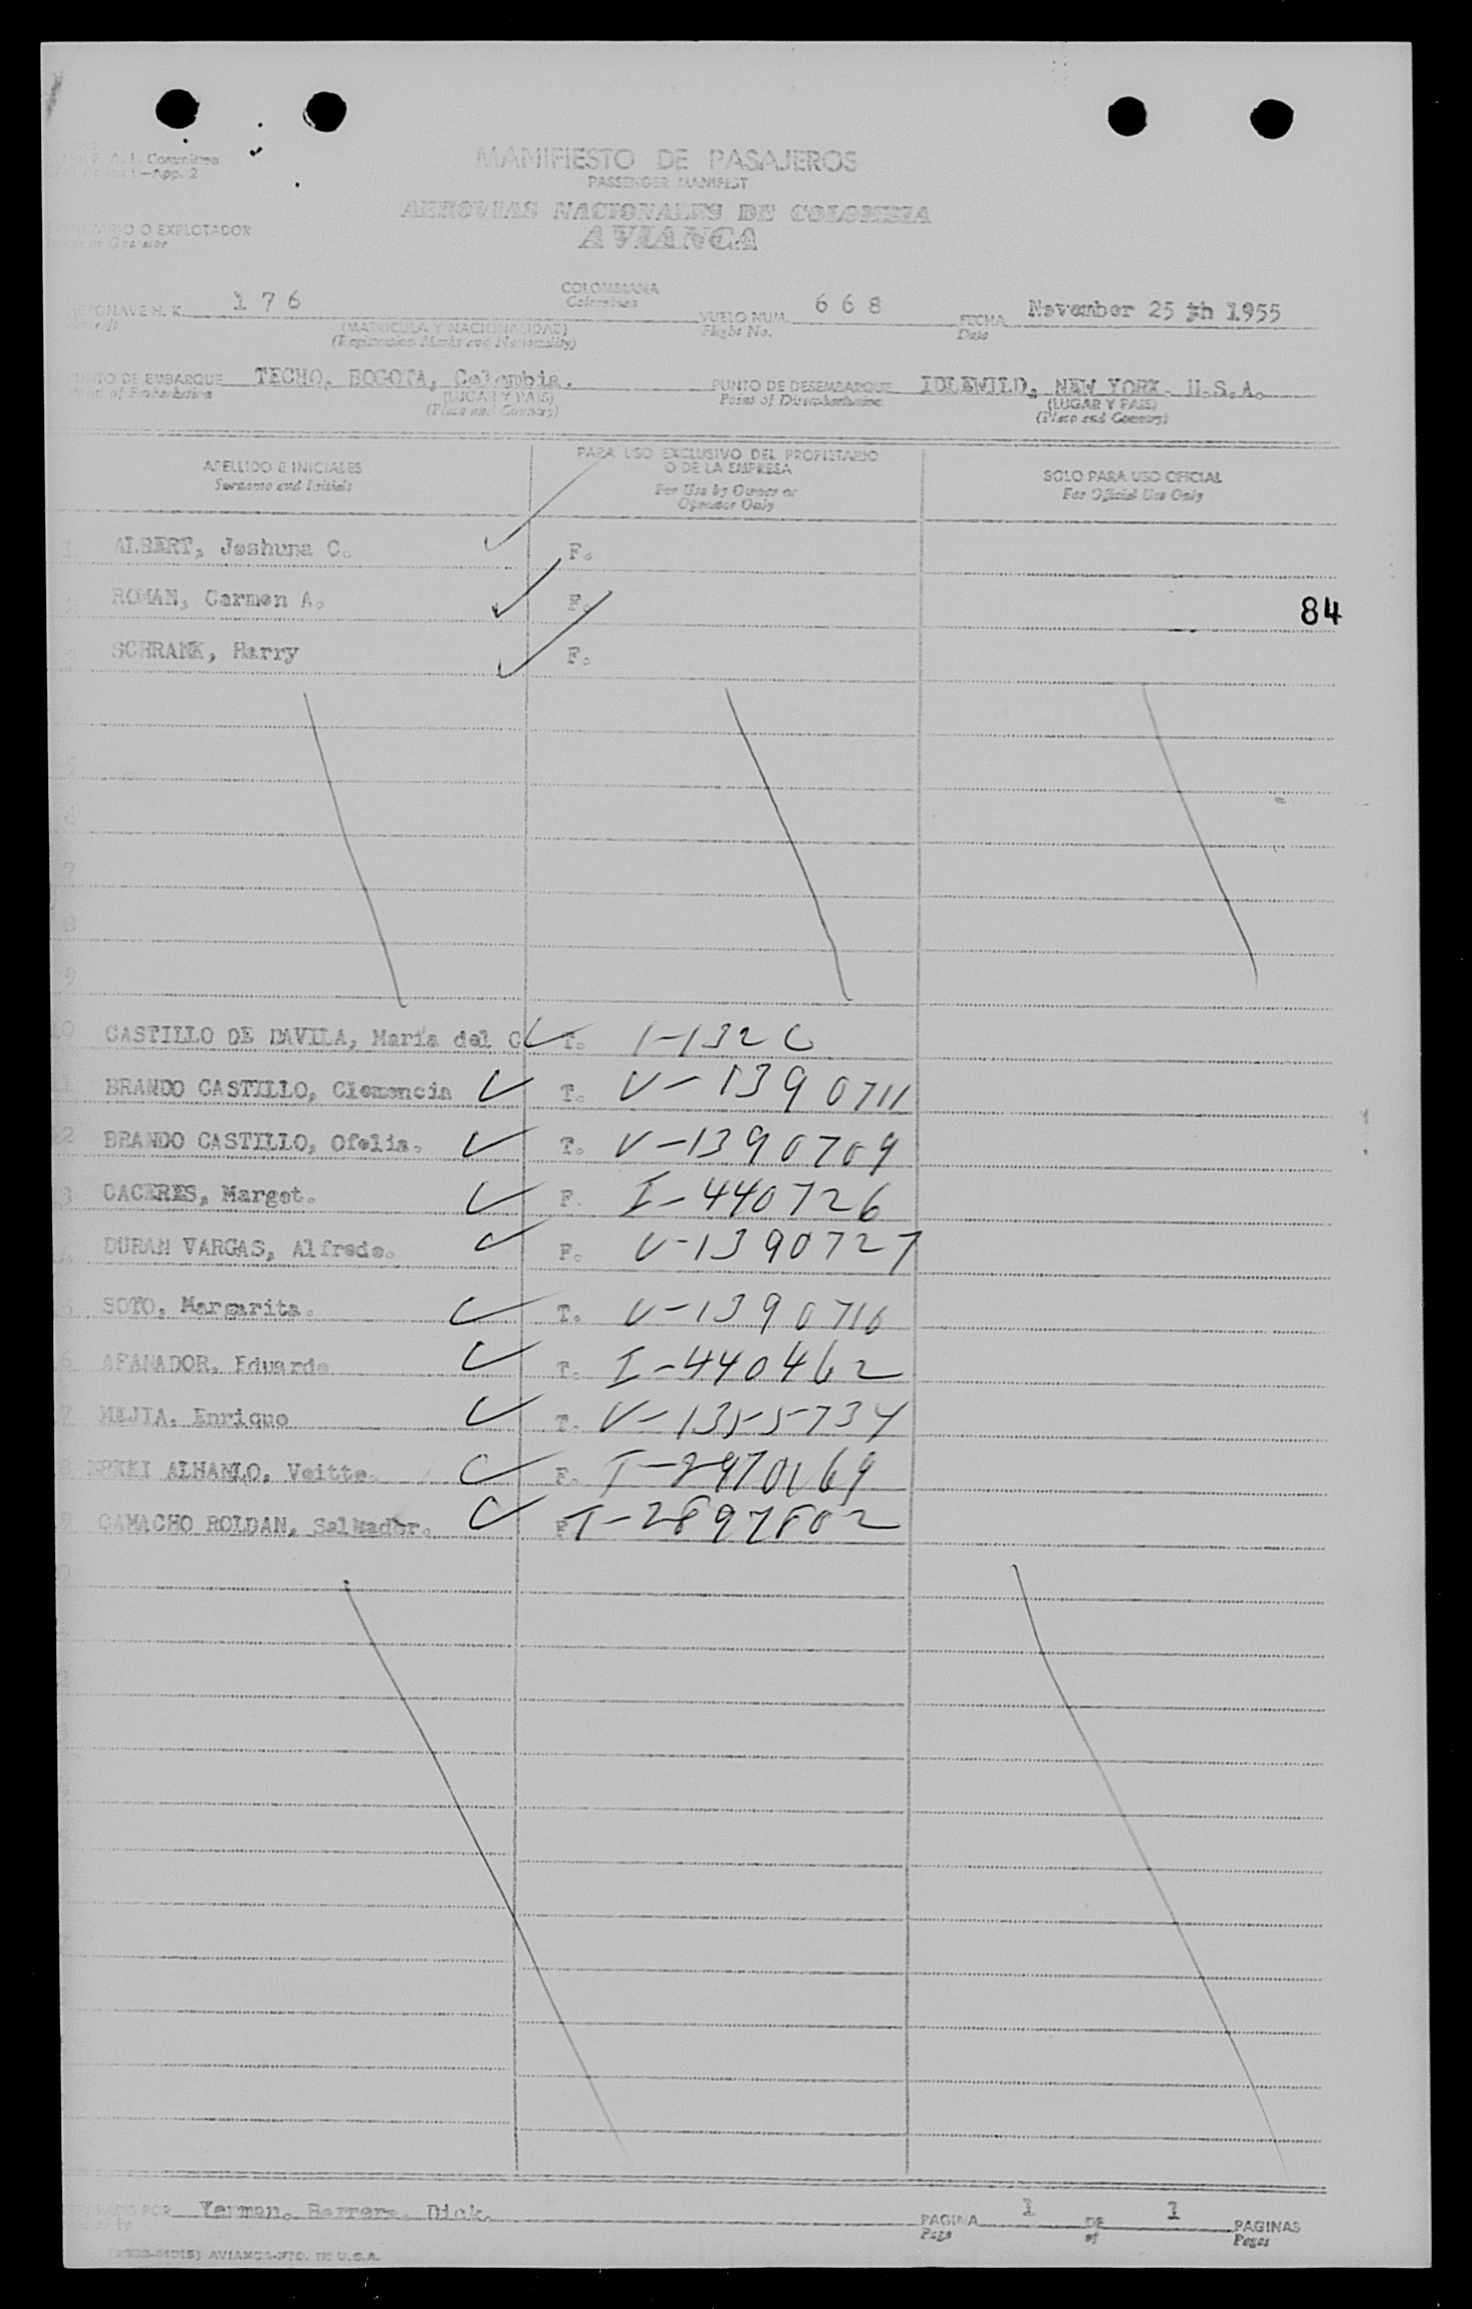 MANIFIESTO DE PASAJEROS
PASSENGER MANIFEST
AEROVIAS NACIONALES DE COLOMBIA
O EXPLOTADOR
AVIANCA
176
COLOMBIANA
Colombian
VUELO NUM. 668
Flight No.
FECHA November 25 th 1955
Date
(MATRICULA Y NACIONALIDAD)
(Registration Marks and Nationality)
DE EMBARQUE TECHO, BOGOTA, Colombia.
of Embarkation
(LUGAR Y PAIS)
(Place and Country)
PUNTO DE DESEMBARQUE IDLEWILD, NEW YORK. U.S.A.
Point of Disembarkation
(LUGAR Y PAIS)
(Place and Country)
APELLIDO E INICIALES
Surname and Initials
PARA USO EXCLUSIVO DEL PROPIETARIO
O DE LA EMPRESA
For Use by Owner or
Operator Only
SOLO PARA USO OFICIAL
For Official Use Only
ALBERT, Joshuna C. F.
ROMAN, Carmen A. F.
84
SCHRANK, Harry F.
7
8
9
CASTILLO DE DAVILA, María del C T.
BRANDO CASTILLO, Clemencia T. V-1390711
BRANDO CASTILLO, Ofelia. T. V-1390709
CACERES, Margot. F. I-440726
DURAN VARGAS, Alfredo. F. V-1390727
SOTO, Margarita. T. V-1390710
AFANADOR, Eduardo T. I-440462
MEJIA, Enrique T. V-1355734
ALHANLO, F.
CAMACHO ROLDAN, Salvador. F. T-2897802
Yerman. Barrera. Dick.
PAGINA 1 DE 1 PAGINAS
Page of Pages